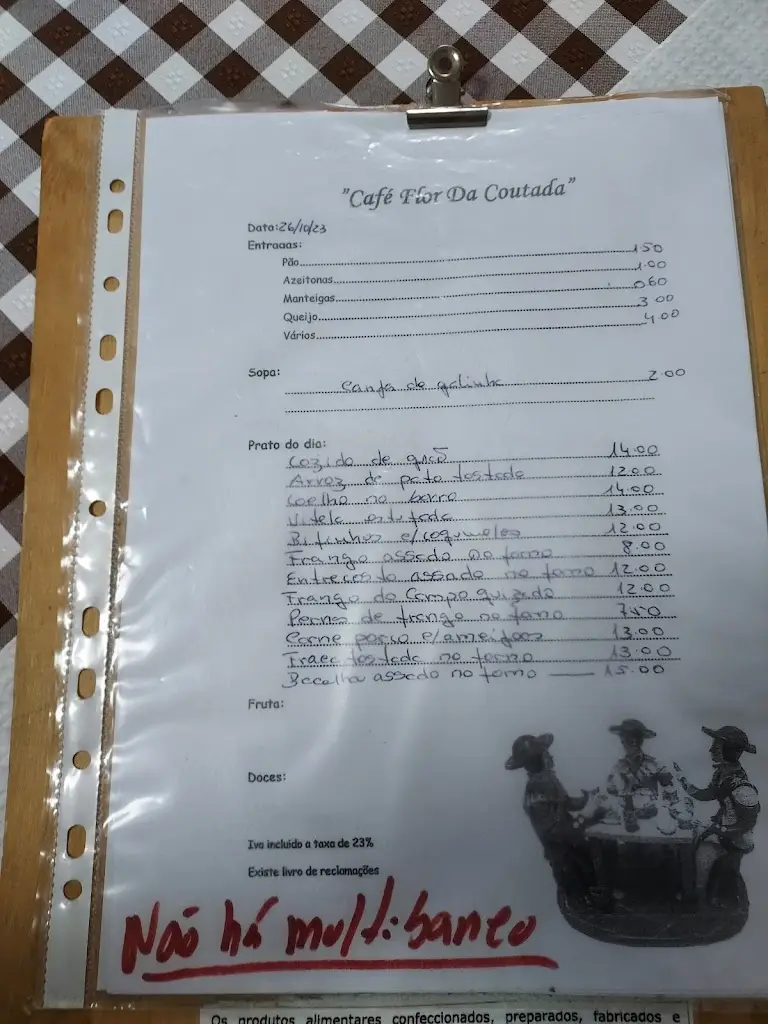 "Café Flor Da Coutada"
Data:26/10/23
Entradas:
Pão 1.50
Azeitonas 1.00
Manteigas 0.60
Queijo 3.00
Vários 4.00
Sopa:
Canja de galinha 2.00
Prato do dia:
Cozido de grão 14.00
Arroz de pato tostado 12.00
Coelho no barro 14.00
Vitela estufada 13.00
Bifinhos c/cogumelos 12.00
Frango assado no forno 8.00
Entrecosto assado no forno 12.00
Frango do Campo guizado 12.00
Perna de frango no forno 7.50
Carne porco c/ameijoas 13.00
tostada no forno 13.00
Bacalhau assado no forno — 15.00
Fruta:
Doces:
Iva incluido a taxa de 23%
Existe livro de reclamações
Não há multibanco
Os produtos alimentares confeccionados, preparados, fabricados e